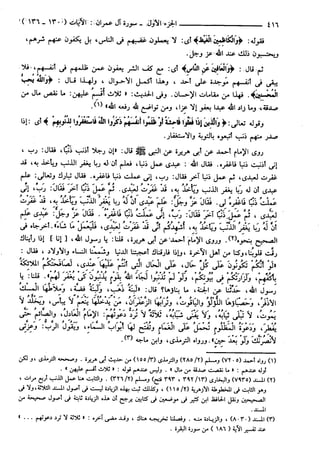 ٤١٦ الجزء الأول - سورة آل عمران: الآيات (١٣٠ - ١٣٦)
فقوله: ﴿والكاظمين الغيظ﴾ أي: لا يعملون غضبهم في الناس، بل يكفون عنهم شرهم،
ويحتسبون ذلك عند الله عز وجل.
ثم قال: ﴿والعافين عن الناس﴾ أي: مع كف الشر يعفون عمن ظلمهم في أنفسهم، فلا
يبقى في أنفسهم موجدة على أحد، وهذا أكمل الأحوال، ولهذا قال: ﴿والله يحب
المحسنين﴾. فهذا من مقامات الإحسان. وفي الحديث: «ثلاث أقسم عليهن: ما نقص مال من
صدقة، وما زاد الله عبدا بعفو إلا عزا، ومن تواضع لله رفعه الله» (١).
وقوله تعالى: ﴿والذين إذا فعلوا فاحشة أو ظلموا أنفسهم ذكروا الله فاستغفروا لذنوبهم﴾ أي: إذا
صدر منهم ذنب أتبعوه بالتوبة والاستغفار.
وروى الإمام أحمد عن أبي هريرة عن النبي ﷺ قال: «إن رجلا أذنب ذنبا، فقال: رب،
إني أذنبت ذنبا فاغفره. فقال الله: عبدي عمل ذنبا، فعلم أن له ربا يغفر الذنب ويأخذ به، قد
غفرت لعبدي، ثم عمل ذنبا آخر فقال: رب، إني عملت ذنبا فاغفره. فقال تبارك وتعالى: علم
عبدي أن له ربا يغفر الذنب ويأخذ به، قد غفرت لعبدي. ثم عمل ذنبا آخر فقال: رب، إني
عملت ذنبا فاغفره لي. فقال عز وجل: علم عبدي أن له ربا يغفر الذنب ويأخذ به، قد غفرت
لعبدي، ثم عمل ذنبا آخر فقال: رب، إني عملت ذنبا فاغفره. فقال عز وجل: عبدي علم
أن له ربا يغفر الذنب ويأخذ به، أشهدكم أني قد غفرت لعبدي، فليعمل ما شاء». أخرجاه في
الصحيح بنحوه (٢). وروى الإمام أحمد عن أبي هريرة، قلنا: يا رسول الله، إنا إذا رأيناك
رقت قلوبنا، وكنا من أهل الآخرة، وإذا فارقناك أعجبتنا الدنيا وشممنا النساء والأولاد، فقال:
«لو أنكم تكونون على كل حال، على الحال التي أنتم عليها عندي، لصافحتكم الملائكة
بأكفهم، ولزارتكم في بيوتكم، ولو لم تذنبوا لجاء الله بقوم يذنبون كي يغفر لهم». قلنا: يا
رسول الله، حدثنا عن الجنة، ما بناؤها؟ قال: «لبنة ذهب، ولبنة فضة، وملاطها المسك
الأذفر، وحصباؤها اللؤلؤ والياقوت، وترابها الزعفران، من يدخلها ينعم لا يبأس، ويخلد لا
يموت، لا تبلى ثيابه، ولا يفنى شبابه، ثلاثة لا ترد دعوتهم: الإمام العادل، والصائم حتى
يفطر، ودعوة المظلوم تحمل على الغمام وتفتح لها أبواب السماء، ويقول الرب: وعزتي
لأنصرنك ولو بعد حين». ورواه الترمذي، وابن ماجه (٣).
(١) رواه أحمد (٧٢٠٥) ومسلم (٢/ ٢٨٥) والترمذي (٣/ ١٥٥) من حديث أبي هريرة. وصححه الترمذي، ولكن
أوله عندهم: «ما نقصت صدقة من مال». وليس عندهم قوله: «ثلاث أقسم عليهن».
(٢) المسند (٧٩٣٥) والبخاري (١٣/ ٣٩٢، ٣٩٣ فتح) ومسلم (٢/ ٣٢٦). والثابت هنا عمل الذنب أربع مرات،
وهو الثابت في المخطوطة الأزهرية (٢/ ١١٥)، وكذلك ثبت بهذه الزيادة ليست في أصول المسند الثلاثة، ولا في
الصحيحين ونقل الحافظ ابن كثير في موضعين في كتابين يرجح أن هذه الزيادة ثابتة في أصول صحيحة من
المسند.
(٣) المسند (٨٠٣٠)، والزيادة منه. وفصلنا تخريجه هناك، وقد مضى آخره: «ثلاثة لا ترد دعوتهم...»
عند تفسير الآية (١٨٦) من سورة البقرة.